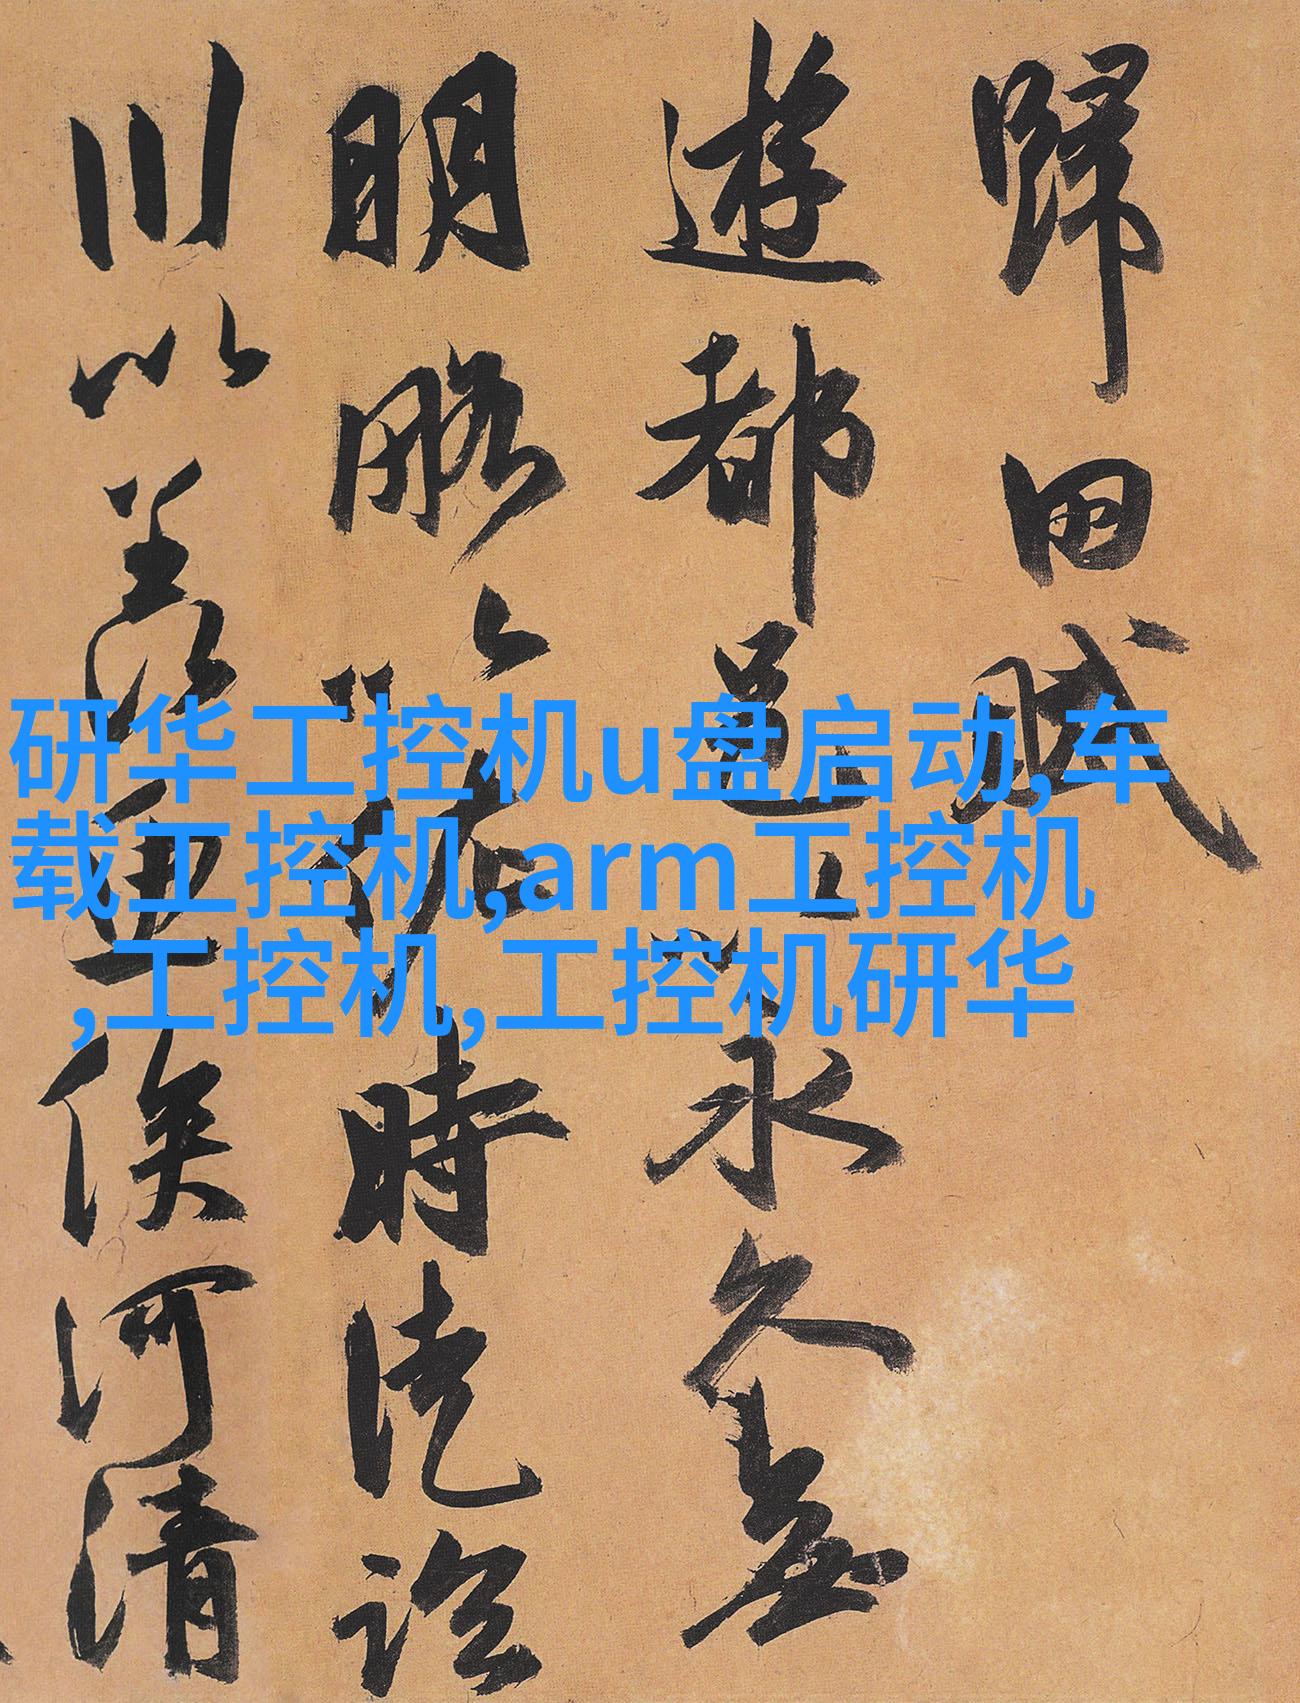 歸田賦
遊都邑以永久無
明略以佐時徒臨
川以羨魚俟河清
研华工控机u盘启动,车
载工控机,arm工控机
,工控机,工控机研华